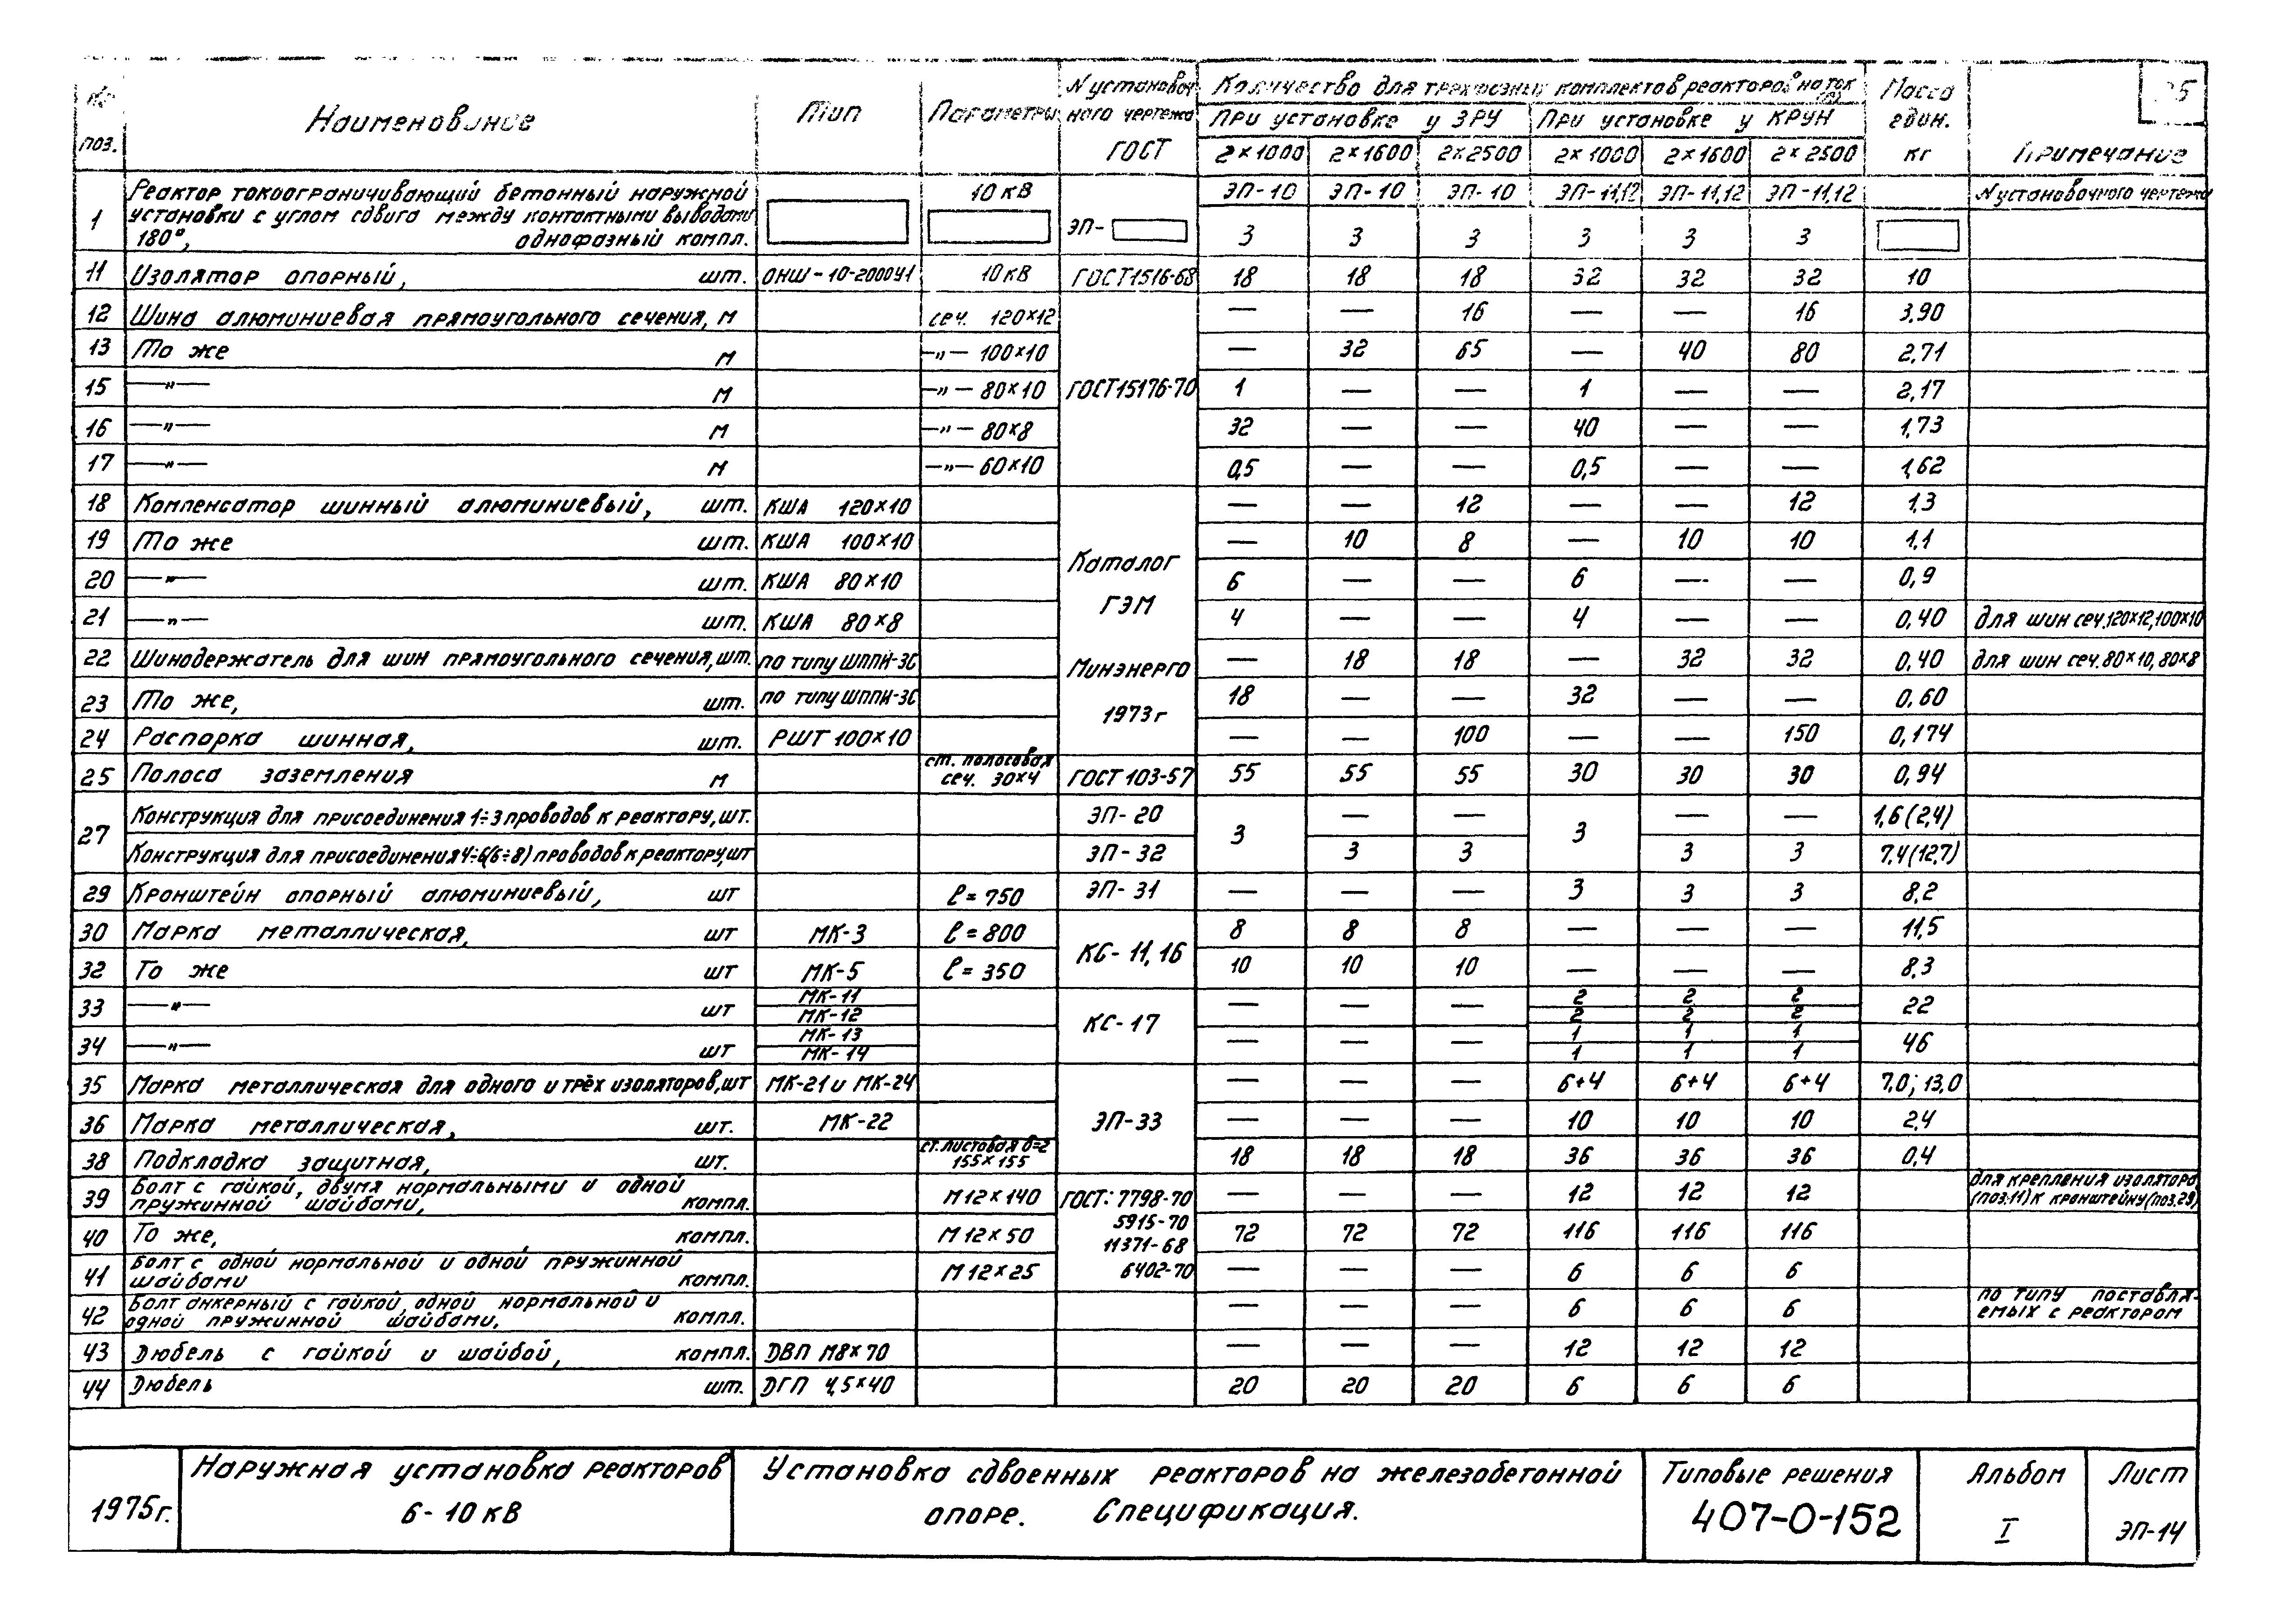 № поз. Наименование Тип Параметры N установочного чертежа ГОСТ Количество для трехфазных комплектов реакторов на ток (А) Масса един. кг Примечание
При установке у ЗРУ При установке у КРУН
2×1000 2×1600 2×2500 2×1000 2×1600 2×2500
1 Реактор токоограничивающий бетонный наружной 10 кВ ЭП-10 ЭП-10 ЭП-10 ЭП-11,12 ЭП-11,12 ЭП-11,12 N установочного чертежа
установки с углом сдвига между контактными выводами ЭП-
180°, однофазный компл. 3 3 3 3 3 3
11 Изолятор опорный, шт. ОНШ-10-2000У1 10 кВ ГОСТ1516-68 18 18 18 32 32 32 10
12 Шина алюминиевая прямоугольного сечения, м сеч. 120×12 — — 16 — — 16 3,90
13 То же м —"— 100×10 — 32 65 — 40 80 2,71
15 —"— м —"— 80×10 ГОСТ15176-70 1 — — 1 — — 2,17
16 —"— м —"— 80×8 32 — — 40 — — 1,73
17 —"— м —"— 60×10 0,5 — — 0,5 — — 1,62
18 Компенсатор шинный алюминиевый, шт. КША 120×10 — — 12 — — 12 1,3
19 То же шт. КША 100×10 Каталог — 10 8 — 10 10 1,1
20 —"— шт. КША 80×10 ГЭМ 6 — — 6 — — 0,9
21 —"— шт. КША 80×8 4 — — 4 — — 0,40 для шин сеч.120×12,100×10
22 Шинодержатель для шин прямоугольного сечения, шт. по типу ШППИ-3С Минэнерго — 18 18 — 32 32 0,40 для шин сеч.80×10, 80×8
23 То же, шт. по типу ШППИ-3С 1973г 18 — — 32 — — 0,60
24 Распорка шинная, шт. РШТ 100×10 — — 100 — — 150 0,174
25 Полоса заземления м ст. полосовая сеч. 30×4 ГОСТ 103-57 55 55 55 30 30 30 0,94
27 Конструкция для присоединения 1÷3 проводов к реактору, шт. ЭП-20 3 — — 3 — — 1,6 (2,4)
Конструкция для присоединения 4÷6(6÷8) проводов к реактору, шт ЭП-32 3 3 3 3 7,4 (12,7)
29 Кронштейн опорный алюминиевый, шт ℓ=750 ЭП-31 — — — 3 3 3 8,2
30 Марка металлическая, шт МК-3 ℓ=800 КС-11,16 8 8 8 — — — 11,5
32 То же шт МК-5 ℓ=350 10 10 10 — — — 8,3
33 —"— шт МК-11 МК-12 КС-17 — — — 2 2 2 2 2 2 22
34 —"— шт МК-13 МК-14 — — — 1 1 1 1 1 1 46
35 Марка металлическая для одного и трёх изоляторов, шт МК-21 и МК-24 — — — 6+4 6+4 6+4 7,0; 13,0
36 Марка металлическая, шт. МК-22 ЭП-33 — — — 10 10 10 2,4
38 Подкладка защитная, шт. ст. листовая δ=2 155×155 18 18 18 36 36 36 0,4
39 Болт с гайкой, двумя нормальными и одной пружинной шайбами, компл. М12×140 ГОСТ: 7798-70 — — — 12 12 12 для крепления изолятора (поз.11) к кронштейну (поз.29)
40 То же, компл. М12×50 5915-70 11371-68 72 72 72 116 116 116
41 Болт с одной нормальной и одной пружинной шайбами компл. М12×25 6402-70 — — — 6 6 6
42 Болт анкерный с гайкой, одной нормальной и одной пружинной шайбами, компл. — — — 6 6 6 по типу поставляемых с реактором
43 Дюбель с гайкой и шайбой, компл. ДВП М8×70 — — — 12 12 12
44 Дюбель шт. ДГП 4,5×40 20 20 20 6 6 6
1975г. Наружная установка реакторов Установка сдвоенных реакторов на железобетонной Типовые решения Альбом Лист
6-10 кВ опоре. Спецификация. 407-0-152 I ЭП-14